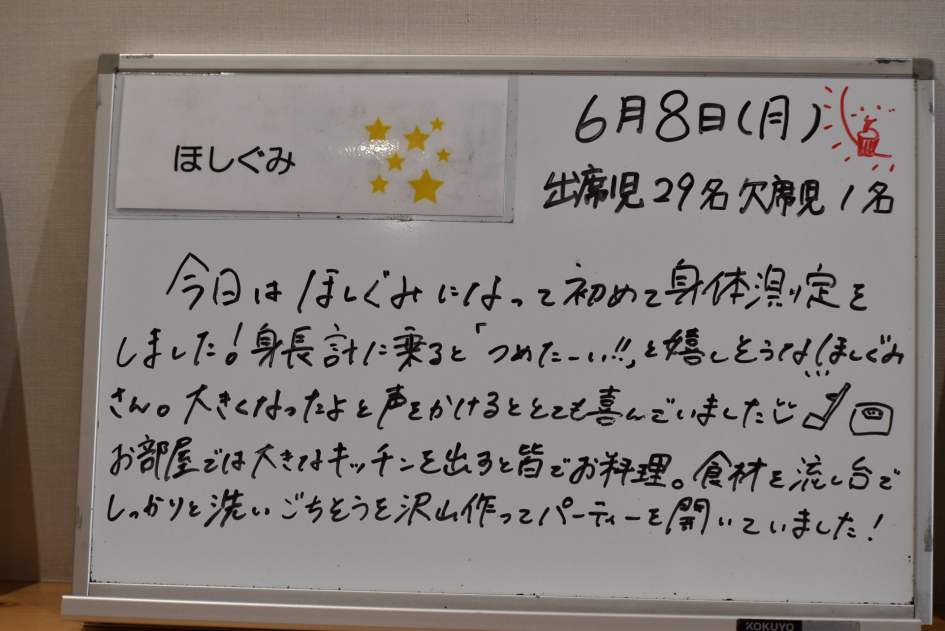 ほしぐみ
6月8日(月)
出席児29名 欠席児1名
今日はほしぐみになって初めて身体測定を
しました!身長計に乗ると「つめたーい!!」と嬉しそうなほしぐみ
さん。大きくなったよと声をかけるととても喜んでいました
お部屋では大きなキッチンを出すと皆でお料理。食材を流し台で
しっかりと洗いごちそうを沢山作ってパーティーを開いていました!
KOKUYO